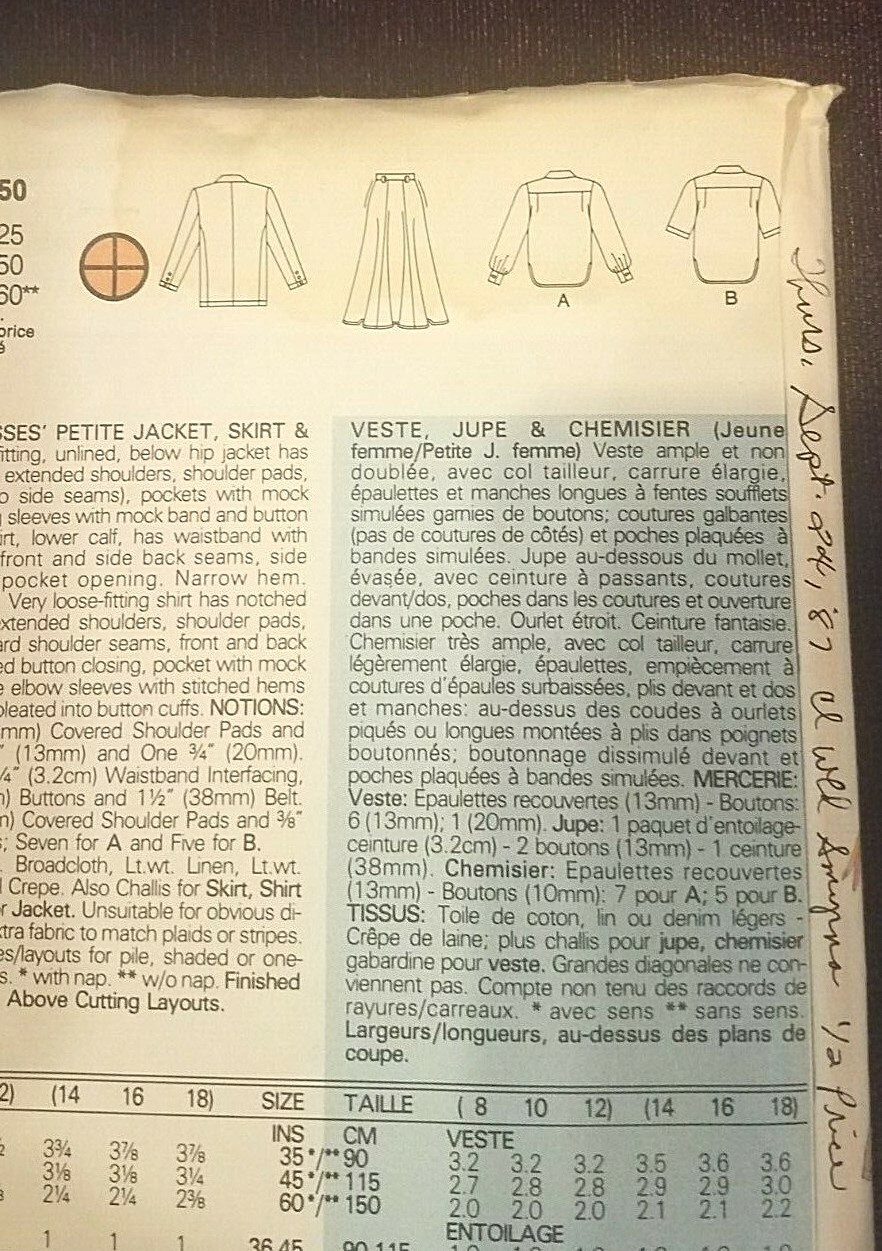 50
25
50
60**
price
é
A
B
SSES' PETITE JACKET, SKIRT &
fitting, unlined, below hip jacket has
extended shoulders, shoulder pads,
o side seams), pockets with mock
sleeves with mock band and button
irt, lower calf, has waistband with
front and side back seams, side
pocket opening. Narrow hem.
Very loose-fitting shirt has notched
extended shoulders, shoulder pads,
ard shoulder seams, front and back
ed button closing, pocket with mock
e elbow sleeves with stitched hems
pleated into button cuffs. NOTIONS:
mm) Covered Shoulder Pads and
" (13mm) and One ¾" (20mm).
¼" (3.2cm) Waistband Interfacing,
m) Buttons and 1½" (38mm) Belt.
m) Covered Shoulder Pads and ⅜"
s; Seven for A and Five for B.
. Broadcloth, Lt.wt. Linen, Lt.wt.
l Crepe. Also Challis for Skirt, Shirt
r Jacket. Unsuitable for obvious di-
xtra fabric to match plaids or stripes.
es/layouts for pile, shaded or one-
s. * with nap. ** w/o nap. Finished
Above Cutting Layouts.
VESTE, JUPE & CHEMISIER (Jeune
femme/Petite J. femme) Veste ample et non
doublée, avec col tailleur, carrure élargie,
épaulettes et manches longues à fentes soufflets
simulées garnies de boutons; coutures galbantes
(pas de coutures de côtés) et poches plaquées à
bandes simulées. Jupe au-dessous du mollet,
évasée, avec ceinture à passants, coutures
devant/dos, poches dans les coutures et ouverture
dans une poche. Ourlet étroit. Ceinture fantaisie.
Chemisier très ample, avec col tailleur, carrure
légèrement élargie, épaulettes, empiècement à
coutures d'épaules surbaissées, plis devant et dos
et manches: au-dessus des coudes à ourlets
piqués ou longues montées à plis dans poignets
boutonnés; boutonnage dissimulé devant et
poches plaquées à bandes simulées. MERCERIE:
Veste: Epaulettes recouvertes (13mm) - Boutons:
6 (13mm); 1 (20mm). Jupe: 1 paquet d'entoilage-
ceinture (3.2cm) - 2 boutons (13mm) - 1 ceinture
(38mm). Chemisier: Epaulettes recouvertes
(13mm) - Boutons (10mm): 7 pour A; 5 pour B.
TISSUS: Toile de coton, lin ou denim légers -
Crêpe de laine; plus challis pour jupe, chemisier
gabardine pour veste. Grandes diagonales ne con-
viennent pas. Compte non tenu des raccords de
rayures/carreaux. * avec sens ** sans sens.
Largeurs/longueurs, au-dessus des plans de
coupe.
2) (14 16 18) SIZE TAILLE ( 8 10 12) (14 16 18)
INS CM VESTE
3¾ 3⅞ 3⅞ 35*/**90 3.2 3.2 3.2 3.5 3.6 3.6
3⅛ 3⅛ 3¼ 45*/**115 2.7 2.8 2.8 2.9 2.9 3.0
2¼ 2¼ 2⅜ 60*/**150 2.0 2.0 2.0 2.1 2.1 2.2
ENTOILAGE
1 1 1 36,45 90,115
Thurs. Sept. 24, '87 at Wld Smyrna 1/2 Price